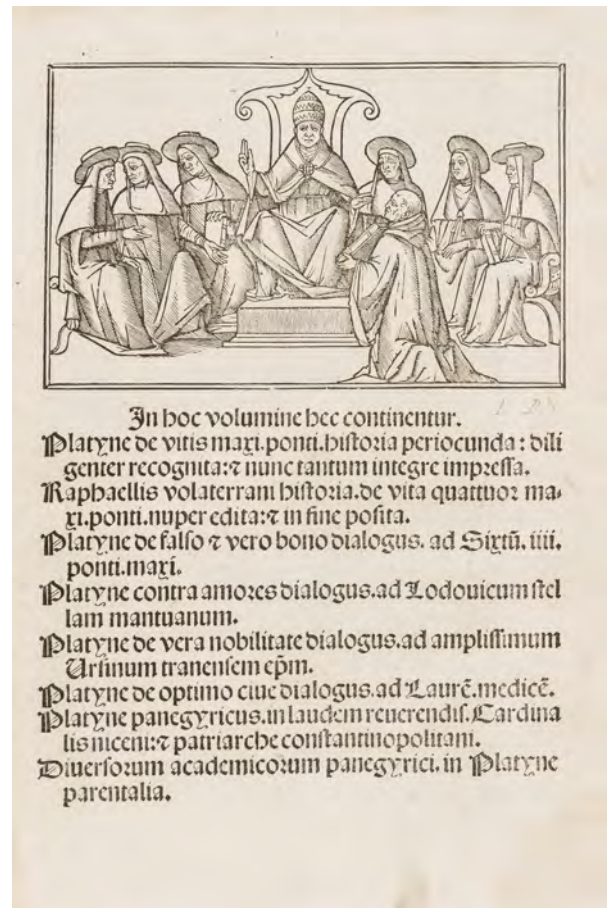 In hoc volumine hec continentur.
Platyne de vitis maxi.ponti.historia periocunda : dili
genter recognita:⁊ nunc tantum integre impressa.
Raphaellis volaterrani historia.de vita quattuor ma⸗
xi.ponti.nuper edita:⁊ in fine posita.
Platyne de falso ⁊ vero bono dialogus. ad Sixtū. iiii.
ponti.maxi.
Platyne contra amores dialogus.ad Lodouicum stel
lam mantuanum.
Platyne de vera nobilitate dialogus.ad amplissimum
Ursinum tranensem ep̄m.
Platyne de optimo ciue dialogus.ad Laurē.medicē.
Platyne panegyricus.in laudem reuerendis.Cardina
lis niceni:⁊ patriarche constantinopolitani.
Diuersorum academicorum panegyrici.in Platyne
parentalia.